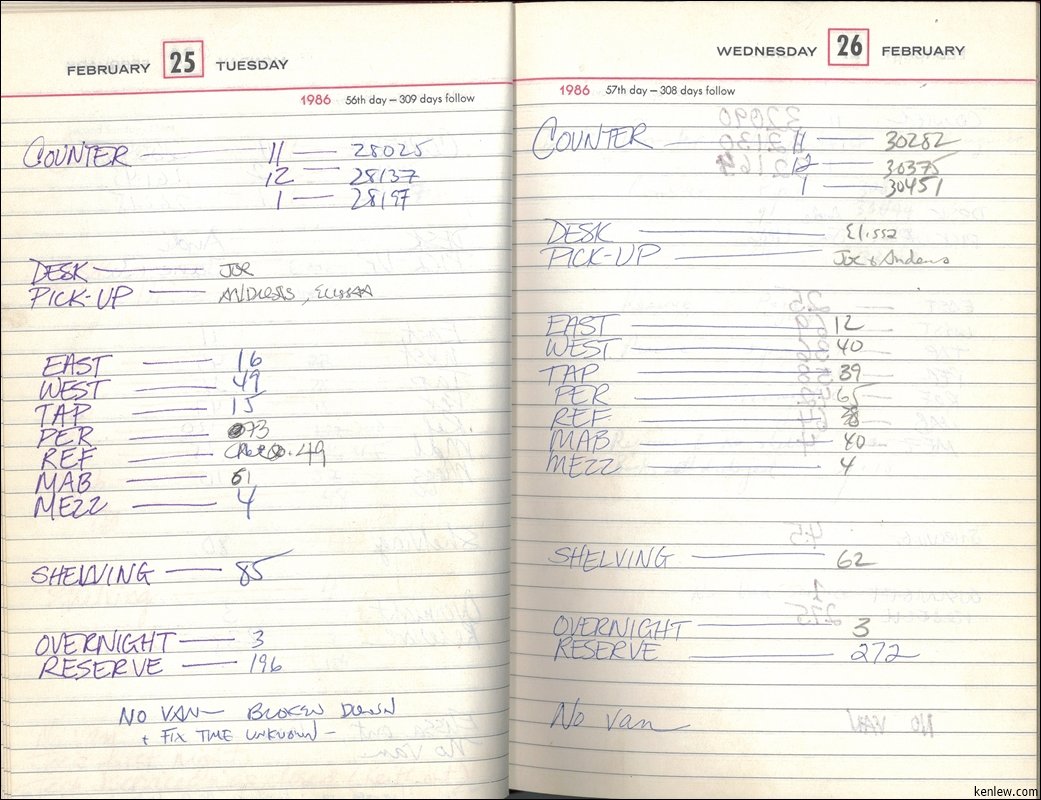 FEBRUARY 25 TUESDAY
1986 56th day — 309 days follow
COUNTER — 11 — 28025
12 — 28137
1 — 28197
DESK — JOE
PICK-UP — ANDRES, ELISSA
EAST — 16
WEST — 49
TAP — 15
PER — 73
REF — 49
MAB — 61
MEZZ — 4
SHELVING — 85
OVERNIGHT — 3
RESERVE — 196
NO VAN — BROKEN DOWN
+ FIX TIME UNKNOWN —
WEDNESDAY 26 FEBRUARY
1986 57th day — 308 days follow
COUNTER — 11 — 30282
12 — 30375
1 — 30451
DESK — Elissa
PICK-UP — Joe + Andres
EAST — 12
WEST — 40
TAP — 39
PER — 65
REF —
MAB — 40
MEZZ — 4
SHELVING — 62
OVERNIGHT — 3
RESERVE — 272
No van
kenlew.com